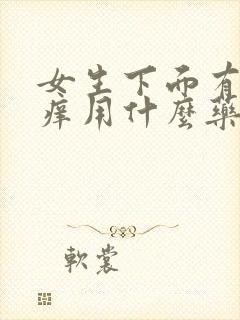 女生下而有
痒用什麼藥
軟裳